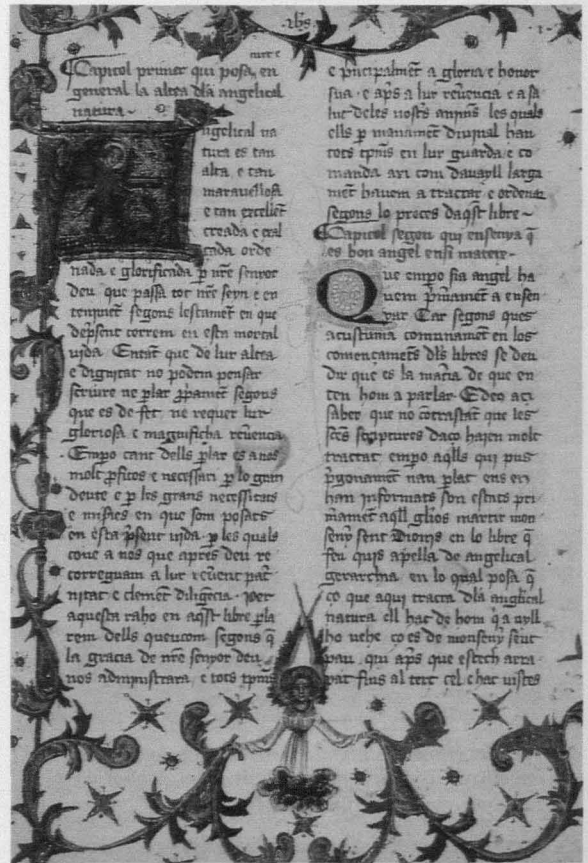 ·ihs·
·i·
Capitol primer qui posa, en
general la altea dla angelical
natura ~
Angelical na
tura es tan
alta, e tan
maravellosa
e tan excellẽt
creada e exal
çada orde
nada e glorificada p̱ nr̃e senyor
deu que passa tot nr̃e seyn e en
teniment segons lestamẽt en que
de p̃sent correm en esta mortal
vida Entãt que de lur altea
e dignitat no podem pensar
scriure ne plar p̱p̃amẽt segons
que es de fet ne requer lur
gloriosa e magnificha rev̄encia
Empo cant dells p̱lar es a nos
molt p̱ficos e necessari p̱ lo gran
deute e p̱ les grans necessitats
e miſ̃ies en que som posats
en esta p̃sent vida · p̱ les quals
cove a nos que apres deu re
corregam a lur rev̄ent pat̃
nitat e clement diligẽcia · Per
aquesta raho en aq̃st libre p̱la
rem dells quevcom segons q̃
la gracia de nr̃e senyor deu
nos administrara, e tots tp̃ms
e p̃ncipalmẽt a gloria e honor
sua · e ap̃s a lur rev̄encia e a sa
lut de les nostr̃s animes les quals
ells p̱ manamẽt divinal han
tots tp̃ms en lur guarda e co
manda axi com davayll larga
mẽt havem a tractar e ordenar
segons lo proces daq̃st libre ~
Capitol segon qui ensenya q̃
es bon angel ensi mateix ·
Que empo sia angel ha
vem p̃mamẽt a ensen
yar Car segons ques
acustuma comunamẽt en los
començamẽts dl̃s libres se deu
dir que es la mat̃ia de que en
ten hom a parlar · E deo açi
saber que no cõtrastãt que les
sc̃es scriptures daço haien molt
tractat empo aq̃lls qui pus
p̱gonament nan p̱lat ens en
han informats son estats pri
m̃amẽt aq̃ll gl̃ios martir mon
seny sent Dionis en lo libre q̃
feu quis apella de angelical
gerarchia en lo qual posa q̃
ço que aqui tracta dla anglical
natura ell hac de hom q̃ a ayll
ho vehe co es de monseny sent
pau · qui ap̃s que estech arra
pat fins al terç cel e hac vistes